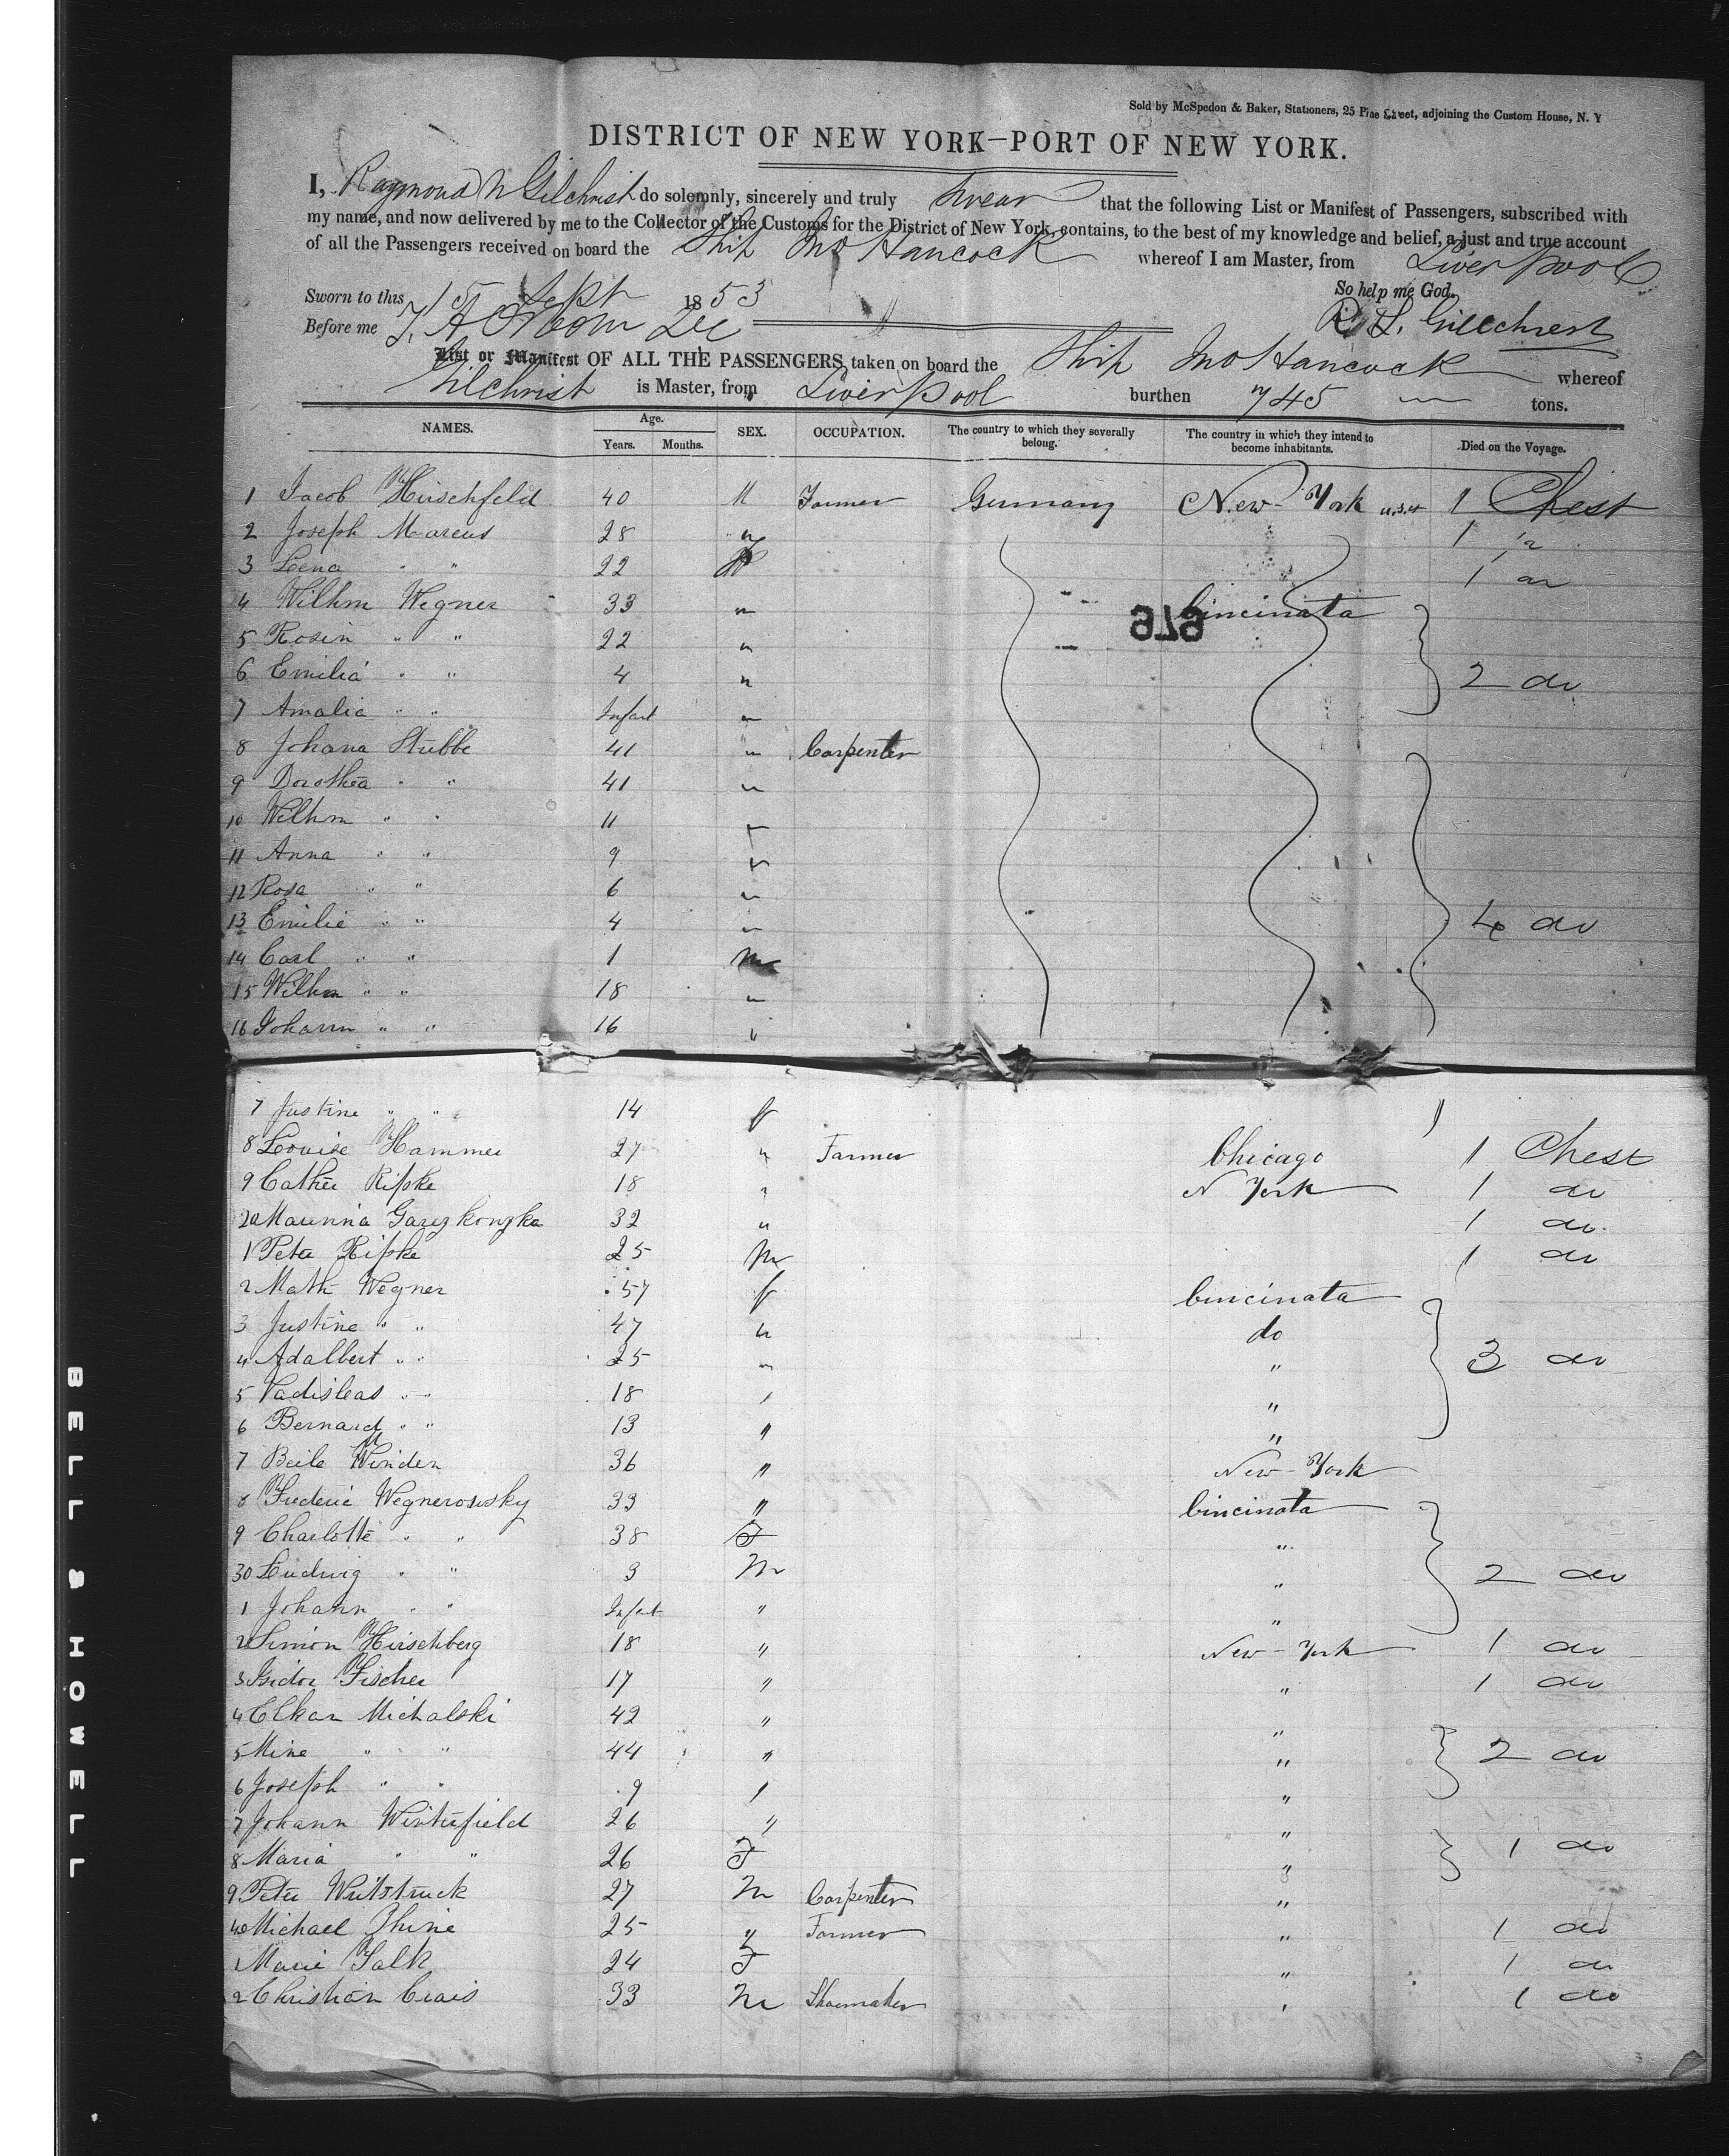 Sold by McSpedon & Baker, Stationers, 25 Pine Street, adjoining the Custom House, N. Y
DISTRICT OF NEW YORK—PORT OF NEW YORK.
I, Raymond N Gilchrist do solemnly, sincerely and truly swear that the following List or Manifest of Passengers, subscribed with
my name, and now delivered by me to the Collector of the Customs for the District of New York, contains, to the best of my knowledge and belief, a just and true account
of all the Passengers received on board the Ship Jno Hancock whereof I am Master, from Liverpool
So help me God.
Sworn to this 15 Sept 1853
Before me
Gillchrest
List or Manifest OF ALL THE PASSENGERS taken on board the Ship Jno Hancock whereof
Gilchrist is Master, from Liverpool burthen 745 tons.
NAMES. Age. Years. Months. SEX. OCCUPATION. The country to which they severally belong. The country in which they intend to become inhabitants. Died on the Voyage.
1 Jacob Hirschfeld 40 M Farmer Germany New-York U.S.A 1 Chest
2 Joseph Marcus 28 " 1 "
3 Lena " " 22 1 do
4 Wilhm Wegner 33 " Cincinata
979
5 Rosin " " 22 "
6 Emilia " " 4 " 2 do
7 Amalia " " Infant "
8 Johana Stubbe 41 " Carpenter
9 Dorothea " " 41 "
10 Wilhm " " 11 "
11 Anna " " 9 "
12 Rosa " " 6 "
13 Emilie " " 4 " 4 do
14 Carl " " 1 m
15 Wilhm " " 18 "
16 Johann " " 16 "
7 Justine " " 14 f
8 Louise Hammer 27 " Farmer Chicago 1 Chest
9 Cathe Ripke 18 " N York 1 do
20 32 " 1 do
1 Peter Ripke 25 m 1 do
2 Math Wegner 57 f Cincinata
3 Justine " " 47 " do
4 Adalbert " " 25 " " 3 do
5 Vadisleas " " 18 " "
6 Bernard " " 13 " "
7 Beile Winden 36 " New-York
8 Frederic Wegnerowsky 33 " Cincinata
9 Charlotte " " 38 F "
30 Ludwig " " 3 m " 2 do
1 Johann " " Infant " "
2 Simon Hirschberg 18 " New-York 1 do
3 Isidor Fischer 17 " " 1 do
4 Elkan Michalski 42 " "
5 Mine " " 44 " " 2 do
6 Joseph " " 9 " "
7 Johann Winterfield 26 " "
8 Maria " " 26 F " 1 do
9 Peter Wutstruck 27 m Carpenter "
40 Michael Thine 25 " Farmer " 1 do
1 Marie Falk 24 F " 1 do
2 Christian Crais 33 m Shoemaker " 1 do
BELL & HOWELL